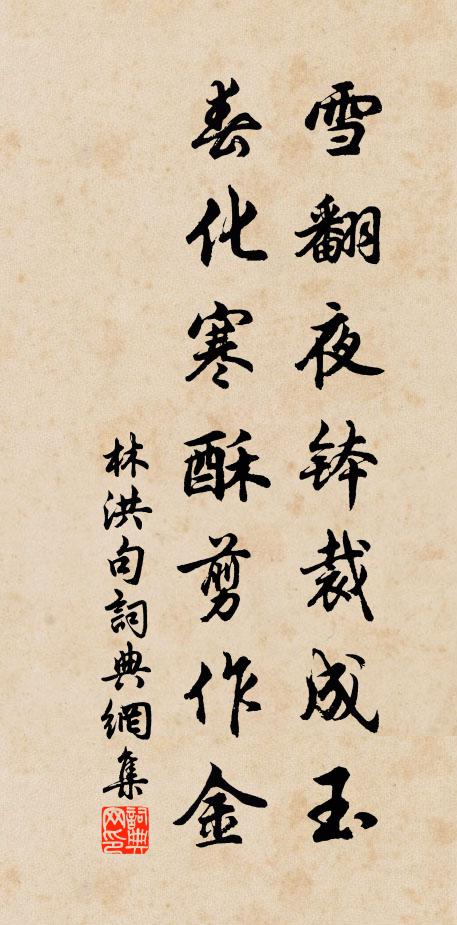 雪翻夜钵裁成玉
春化寒酥剪作金
林洪句詞典網集
詞典网印